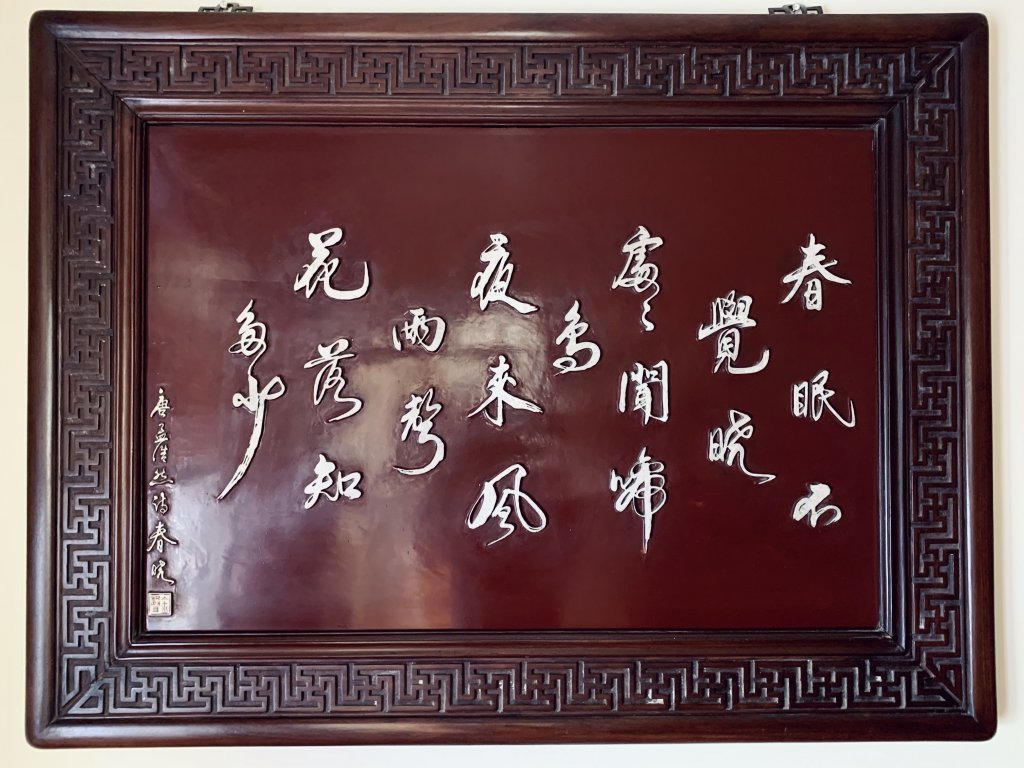 春眠不
覺曉
處〻聞啼
鳥
夜來風
雨聲
花落知
多少
唐孟浩然詩春曉